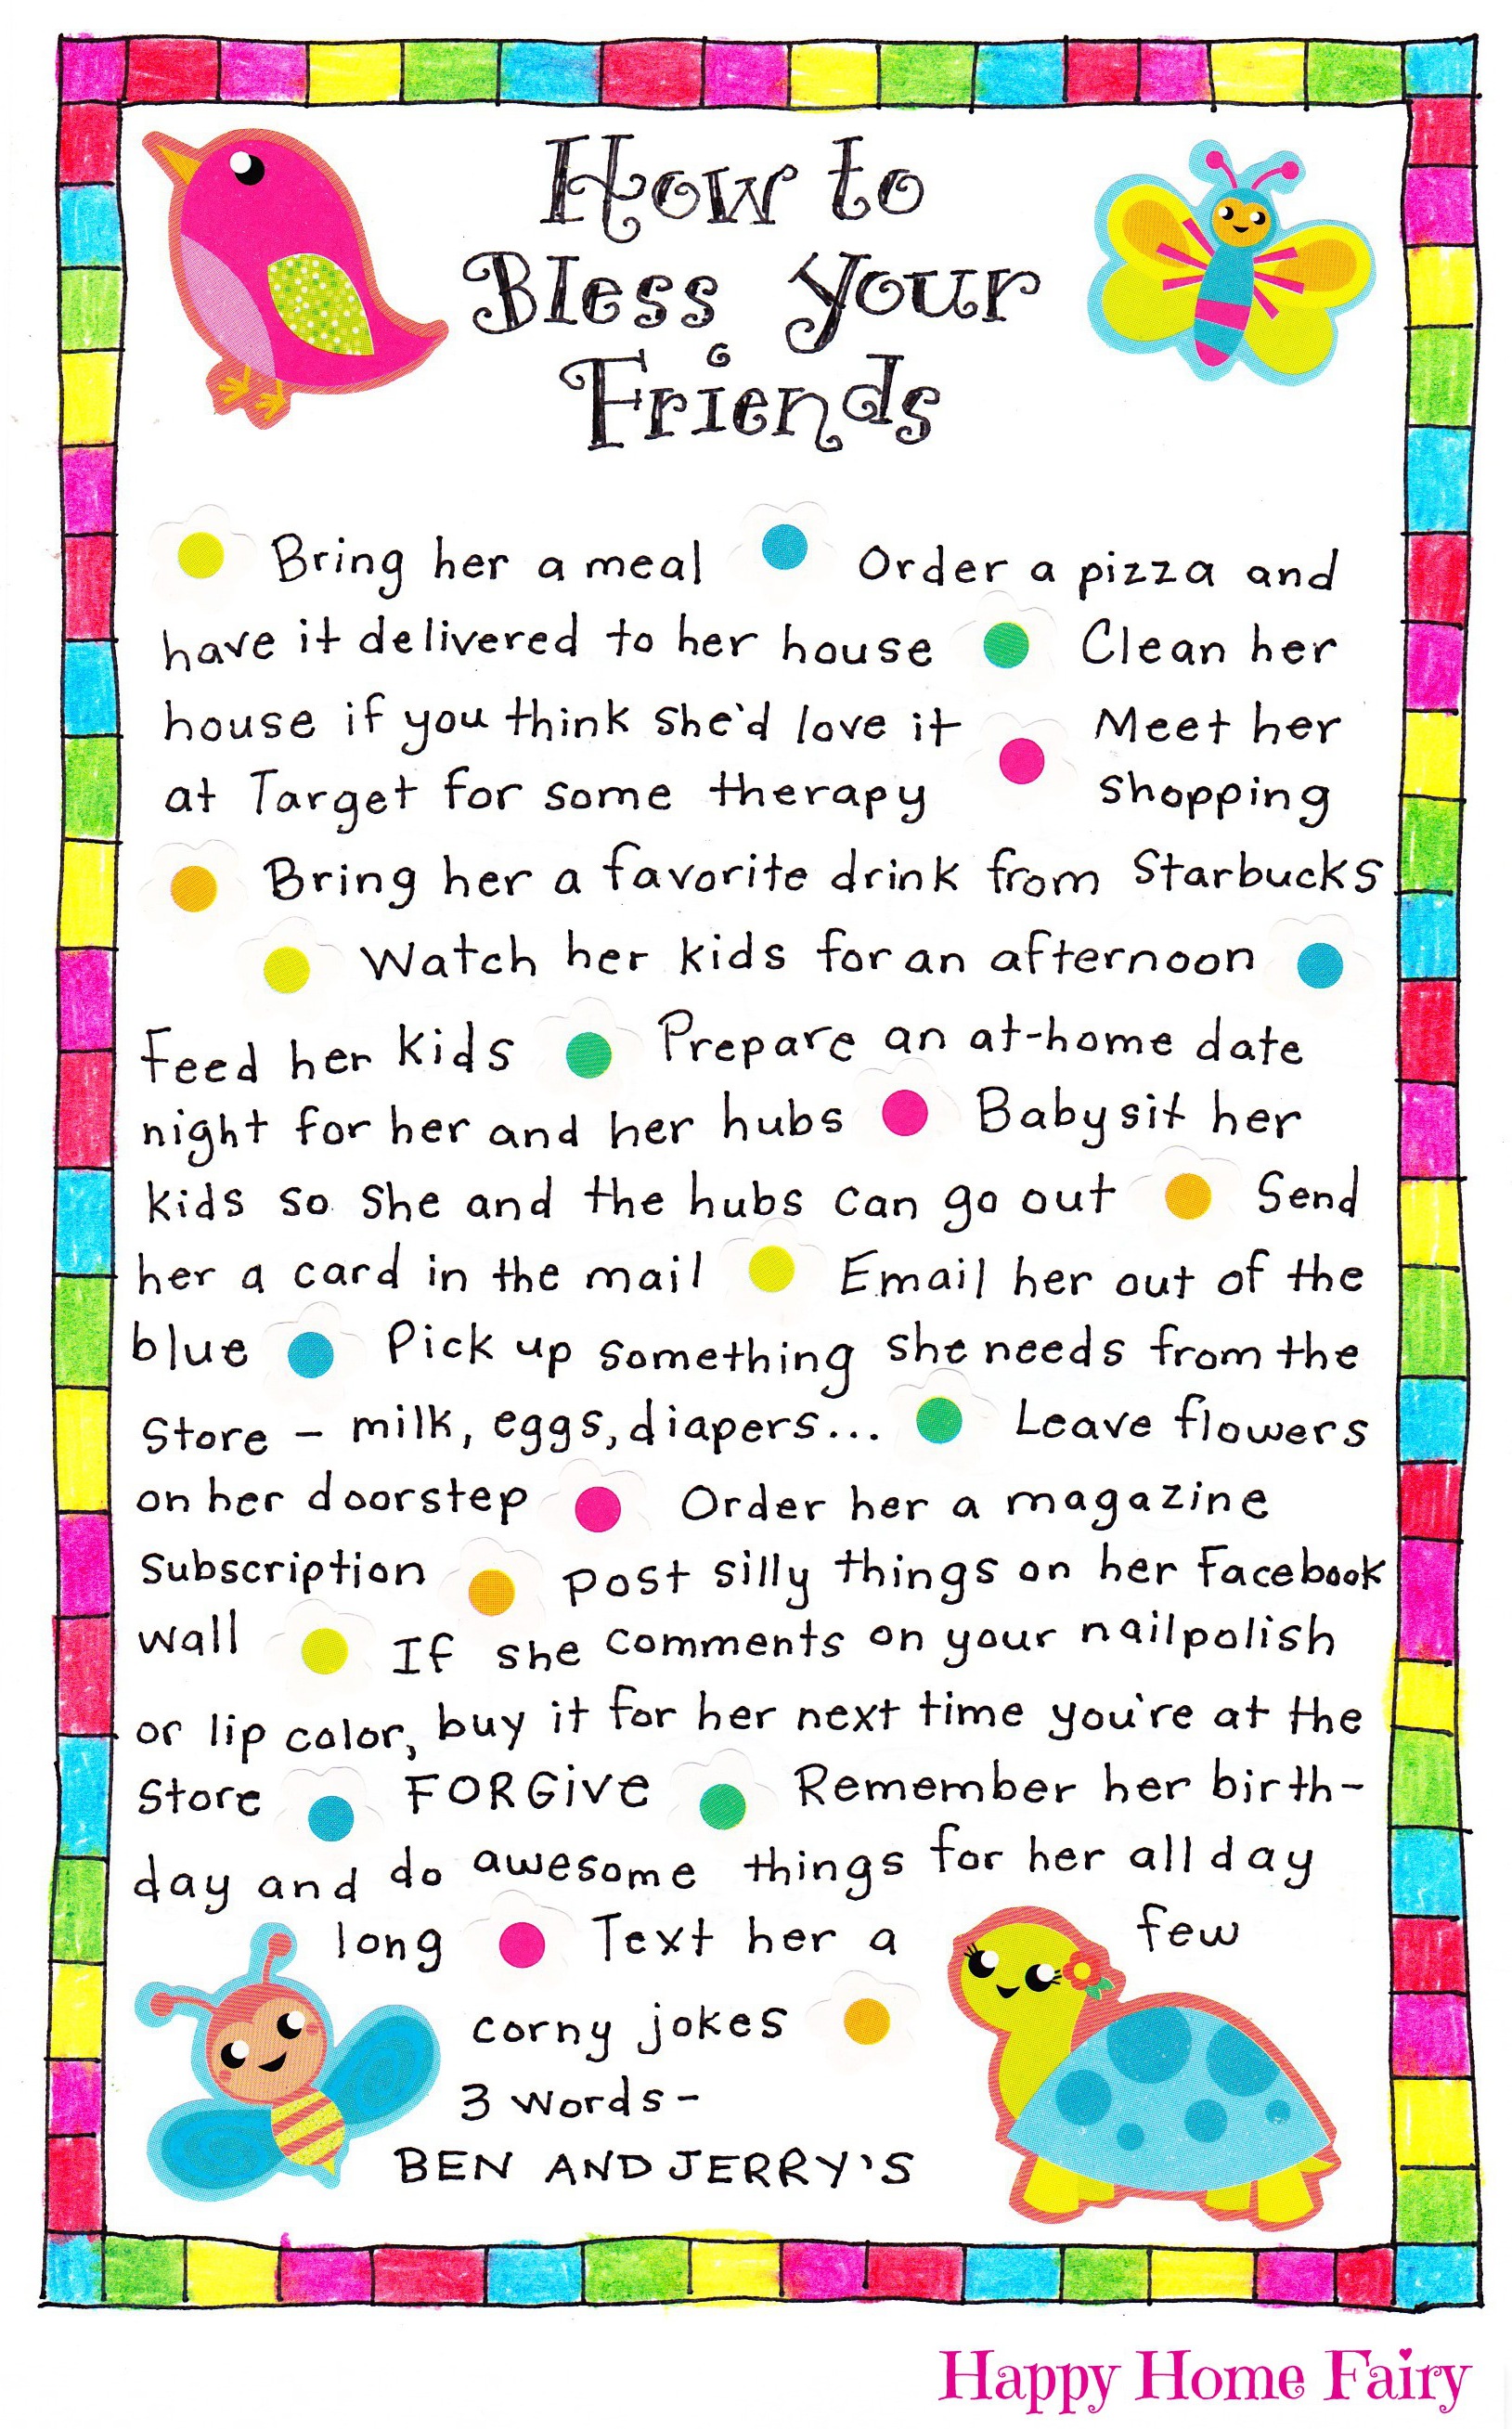 How to
Bless your
Friends
Bring her a meal Order a pizza and
have it delivered to her house Clean her
house if you think she'd love it Meet her
at Target for some therapy shopping
Bring her a favorite drink from Starbucks
Watch her kids for an afternoon
Feed her kids Prepare an at-home date
night for her and her hubs Babysit her
kids so she and the hubs can go out Send
her a card in the mail Email her out of the
blue Pick up something she needs from the
store - milk, eggs, diapers... Leave flowers
on her doorstep Order her a magazine
subscription post silly things on her facebook
wall If she comments on your nailpolish
or lip color, buy it for her next time you're at the
store FORGiVE Remember her birth-
day and do awesome things for her all day
long Text her a few
corny jokes
3 words-
BEN AND JERRY'S
Happy Home Fairy